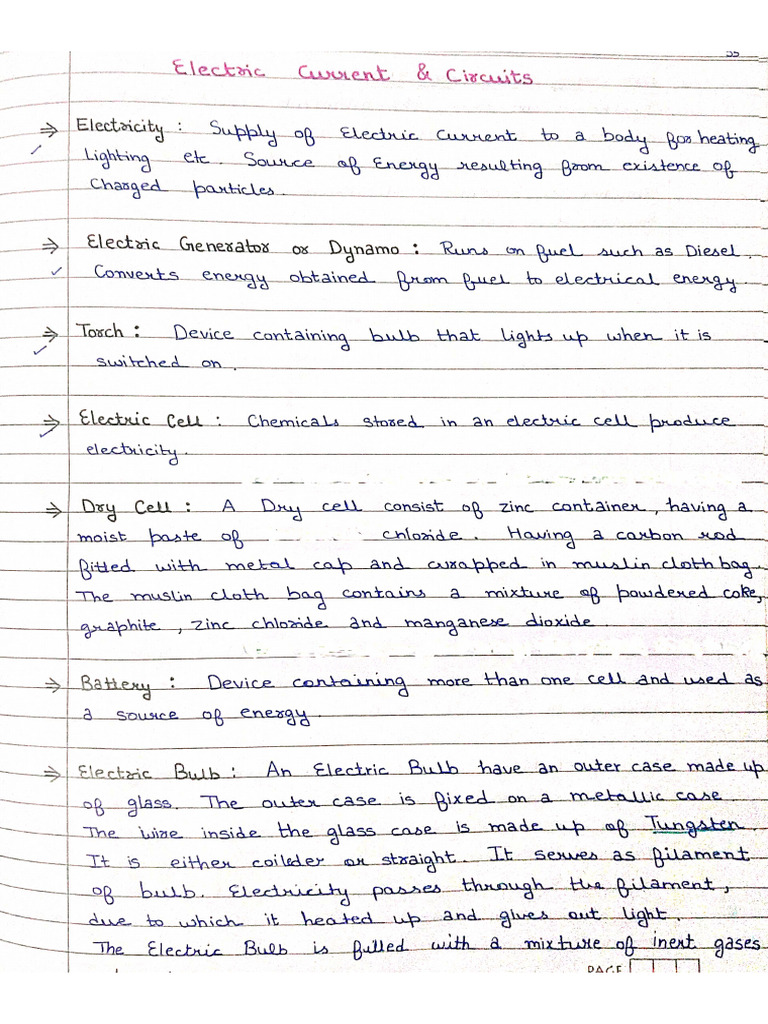 Electric Current & Circuits
⇒ Electricity : Supply of Electric Current to a body for heating
Lighting etc. Source of Energy resulting from existence of
Charged particles.
⇒ Electric Generator or Dynamo : Runs on fuel such as Diesel.
Converts energy obtained from fuel to electrical energy.
⇒ Torch : Device containing bulb that lights up when it is
switched on.
⇒ Electric Cell : Chemicals stored in an electric cell produce
electricity.
⇒ Dry Cell : A Dry cell consist of zinc container, having a
moist paste of chloride. Having a carbon rod
fitted with metal cap and wrapped in muslin cloth bag.
The muslin cloth bag contains a mixture of powdered coke,
graphite, zinc chloride and manganese dioxide.
⇒ Battery : Device containing more than one cell and used as
a source of energy.
⇒ Electric Bulb : An Electric Bulb have an outer case made up
of glass. The outer case is fixed on a metallic case.
The wire inside the glass case is made up of Tungsten.
It is either coileder or straight. It serves as filament
of bulb. Electricity passes through the filament,
due to which it heated up and gives out light.
The Electric Bulb is fulled with a mixture of inert gases
PAGE